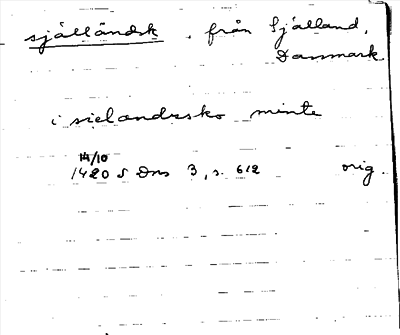 själländsk . från Själland,
Danmark
i sielandzsko minte
14/10
1420 S Dns 3, s. 612 orig.